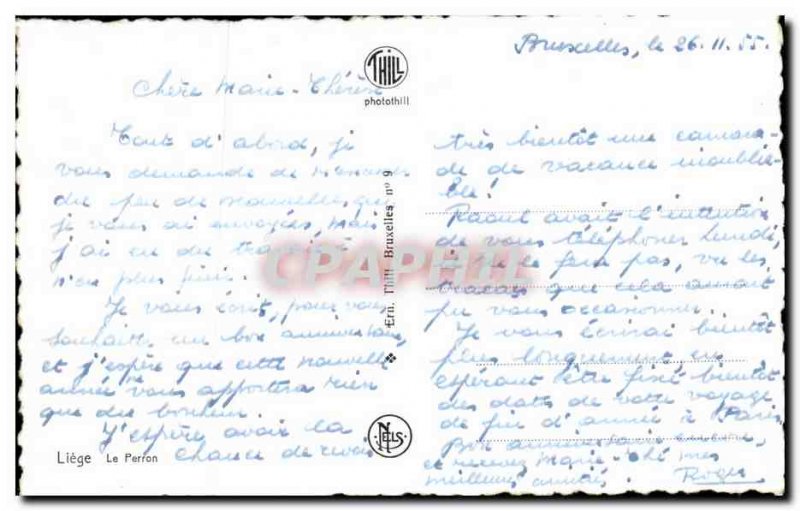 Bruxelles, le 26.11.55.
Chère Marie-Thérèse
Tout d'abord, je
vous demande de m'excuser
du peu de nouvelles que
je vous ai envoyées, mais
j'ai eu du travail à
n'en plus finir.
Je vous écrit, pour vous
souhaiter un bon anniversaire,
et j'espère que cette nouvelle
année vous apportera rien
que du bonheur.
J'espère avoir la
chance de revoir
très bientôt une camara-
de de vacance inoublia-
ble!
Raoul avait l'intention
de vous téléphoner lundi,
il ne le fera pas, vu les
tracas que cela aurait
pu vous occasionner..
Je vous écrirai bientôt
plus longuement en
espérant être fixé bientôt
des dates de votre voyage
de fin d'année à Paris
Bon anniversaire encore,
et recevez Marie-Thé mes
meilleures amitiés. Roger
THILL
photothill
Ern. Thill, Bruxelles nº 9
NELS
Liège Le Perron
CPAPHIL